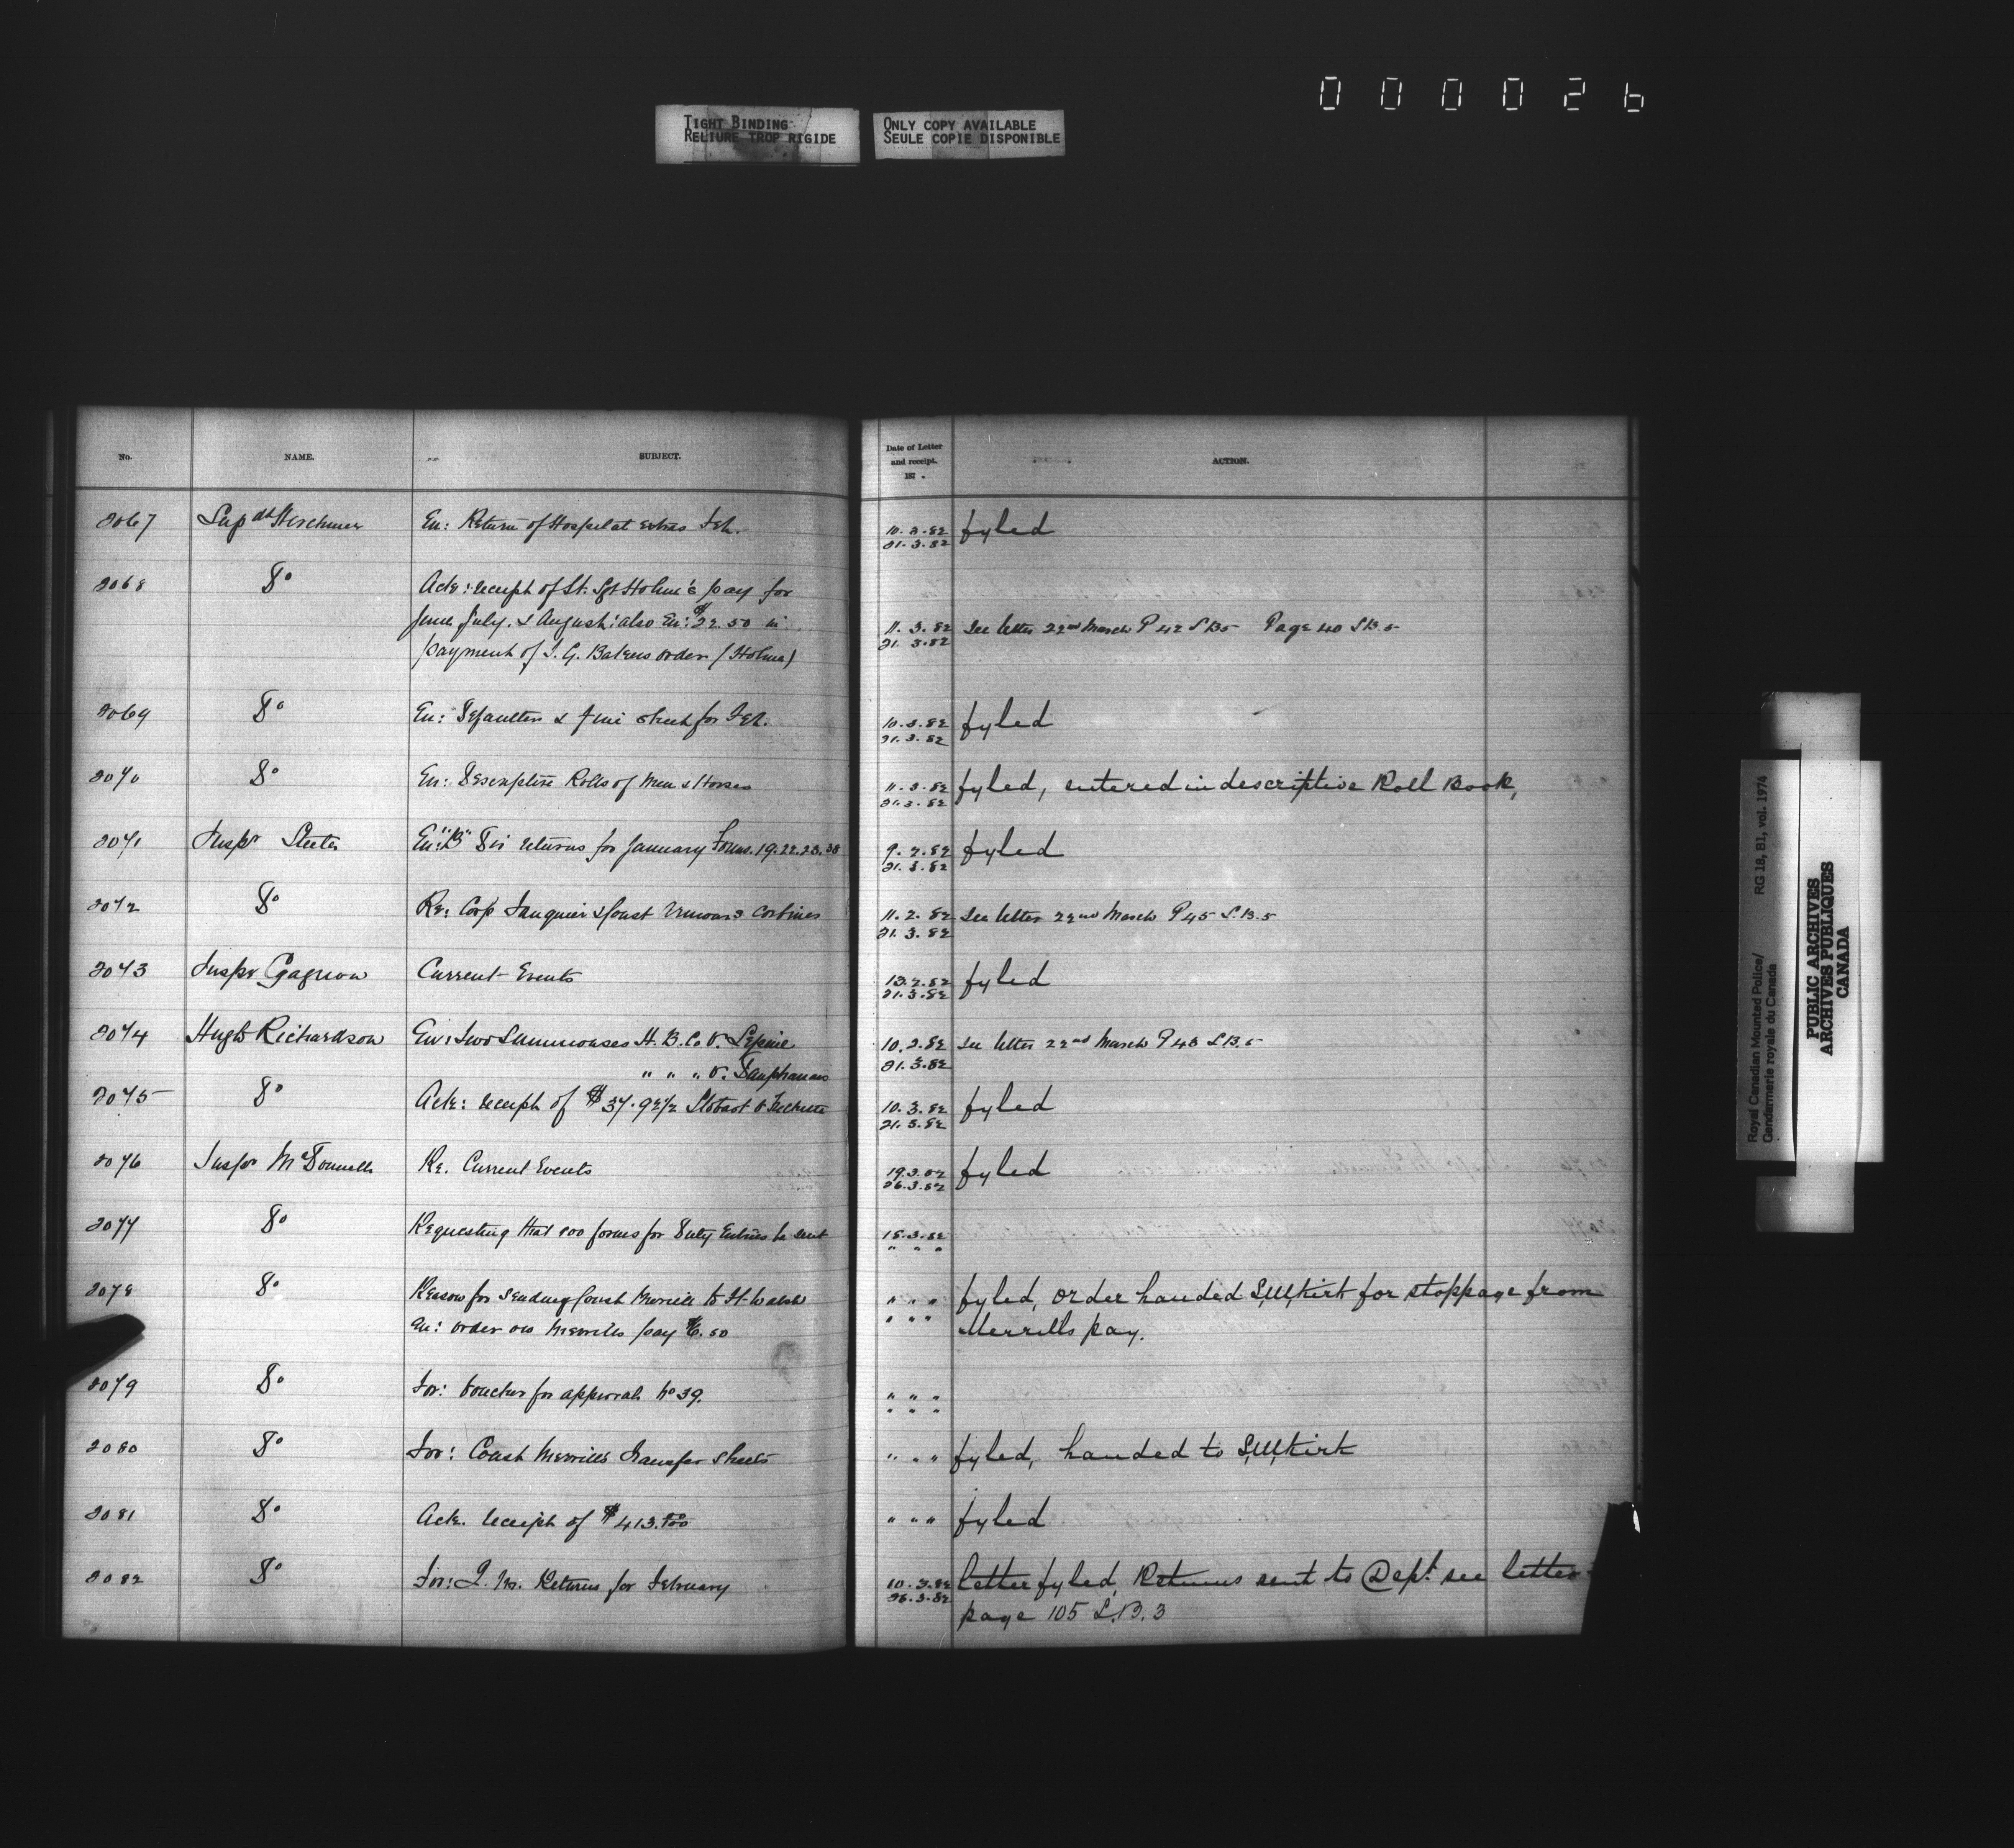 000026
TIGHT BINDING
RELIURE TROP RIGIDE
ONLY COPY AVAILABLE
SEULE COPIE DISPONIBLE
No. NAME. SUBJECT. Date of Letter and receipt. 187 . ACTION.
2067 Supdt Herchmer En: Return of Hospital extras Feb. 10.3.82 fyled
21.3.82
2068 Do Ack: receipt of St. Sgt Holme's pay for
June, July. & August: also En: $22.50 in 11.3.82 See letter 22nd March P 42 LB5 Page 40 LB.5
payment of I. G. Bakers order (Holme) 21.3.82
2069 Do En: Defaulters & fine sheet for Feb. 10.3.82 fyled
21.3.82
2070 Do En: Descriptive Rolls of Men & Horses 11.3.82 fyled, entered in descriptive Roll Book,
21.3.82
2071 Inspr Steele En: "B" Div returns for January Forms. 19.22.23.38 9.2.82 fyled
21.3.82
2072 Do Re: Corp & Const carbines 11.2.82 See letter 22nd March P 45 L.B.5
21.3.82
2073 Inspr Gagnon Current Events 13.2.82 fyled
21.3.82
2074 Hugh Richardson En: Two Summonses H.B.Co v. Lepine 10.3.82 See letter 22nd March P 43 LB.5
" " " v. 21.3.82
2075 Do Ack: receipt of $37.92½ Stobart v 10.3.82 fyled
21.3.82
2076 Inspr McDonnell Re. Current Events 19.3.82 fyled
26.3.82
2077 Do Requesting that forms for Duty Entries be sent 15.3.82
" " "
2078 Do Reason for sending Const Merrill to Ft Walsh " " " fyled, order handed S,M,Kirk for stoppage from
En: order on Merrills pay $6.50 " " " Merrills pay.
2079 Do For: voucher for approval No 39. " " "
" " "
2080 Do For: Const Merrill's Transfer sheets " " " fyled, handed to S,M,Kirk
2081 Do Ack. receipt of $413.00 " " " fyled
2082 Do For: Q. M. Returns for February 10.3.82 Letter fyled, Returns sent to Dept. see letter
26.3.82 page 105 L.B.3
Royal Canadian Mounted Police/
Gendarmerie royale du Canada
RG 18, B1, vol. 1974
PUBLIC ARCHIVES
ARCHIVES PUBLIQUES
CANADA